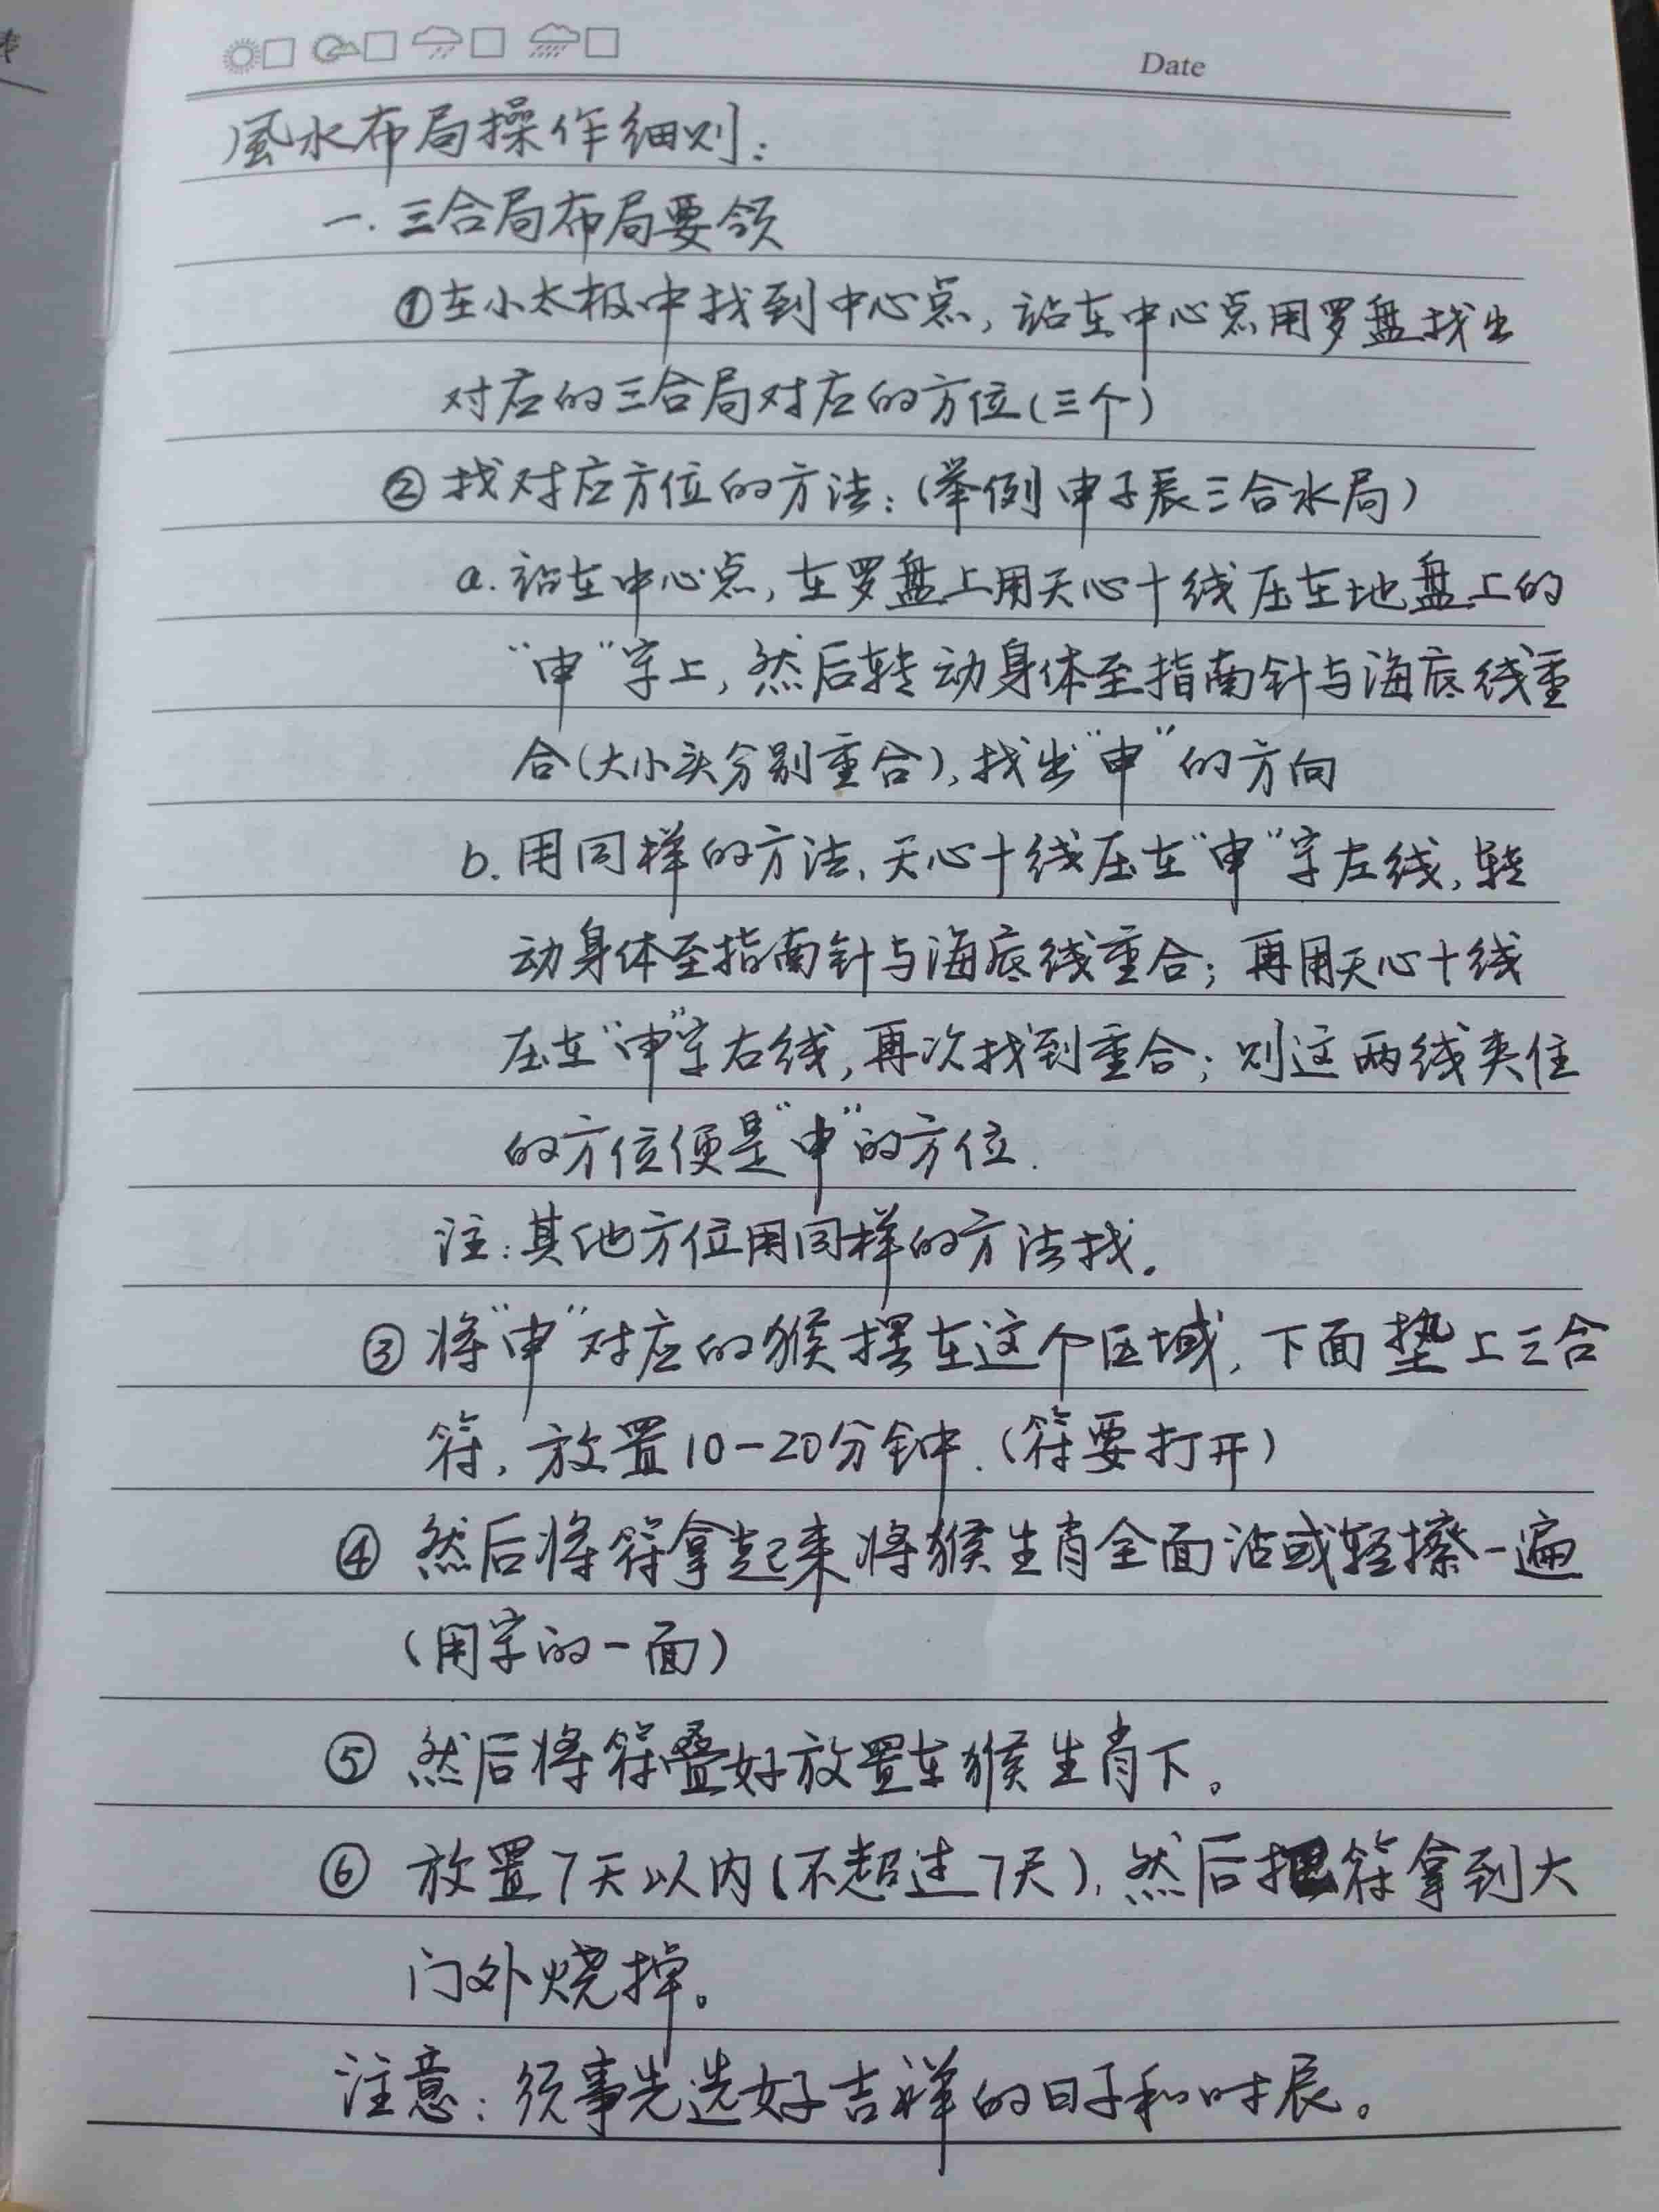 Date
風水布局操作细则:
一.三合局布局要领
①在小太极中找到中心点,站在中心点用罗盘找出
对应的三合局对应的方位(三个)
②找对应方位的方法:(举例申子辰三合水局)
a.站在中心点,在罗盘上用天心十线压在地盘上的
“申”字上,然后转动身体至指南针与海底线重
合(大小头分别重合),找出“申”的方向
b.用同样的方法,天心十线压在“申”字左线,转
动身体至指南针与海底线重合;再用天心十线
压在“申”字右线,再次找到重合;则这两线夹住
的方位便是“申”的方位.
注:其他方位用同样的方法找。
③将“申”对应的猴摆在这个区域,下面垫上三合
符,放置10-20分钟.(符要打开)
④然后将符拿起来将猴生肖全面沾或轻擦一遍
(用字的一面)
⑤然后将符叠好放置在猴生肖下。
⑥放置7天以内(不超过7天),然后把符拿到大
门外烧掉。
注意:须事先选好吉祥的日子和时辰。